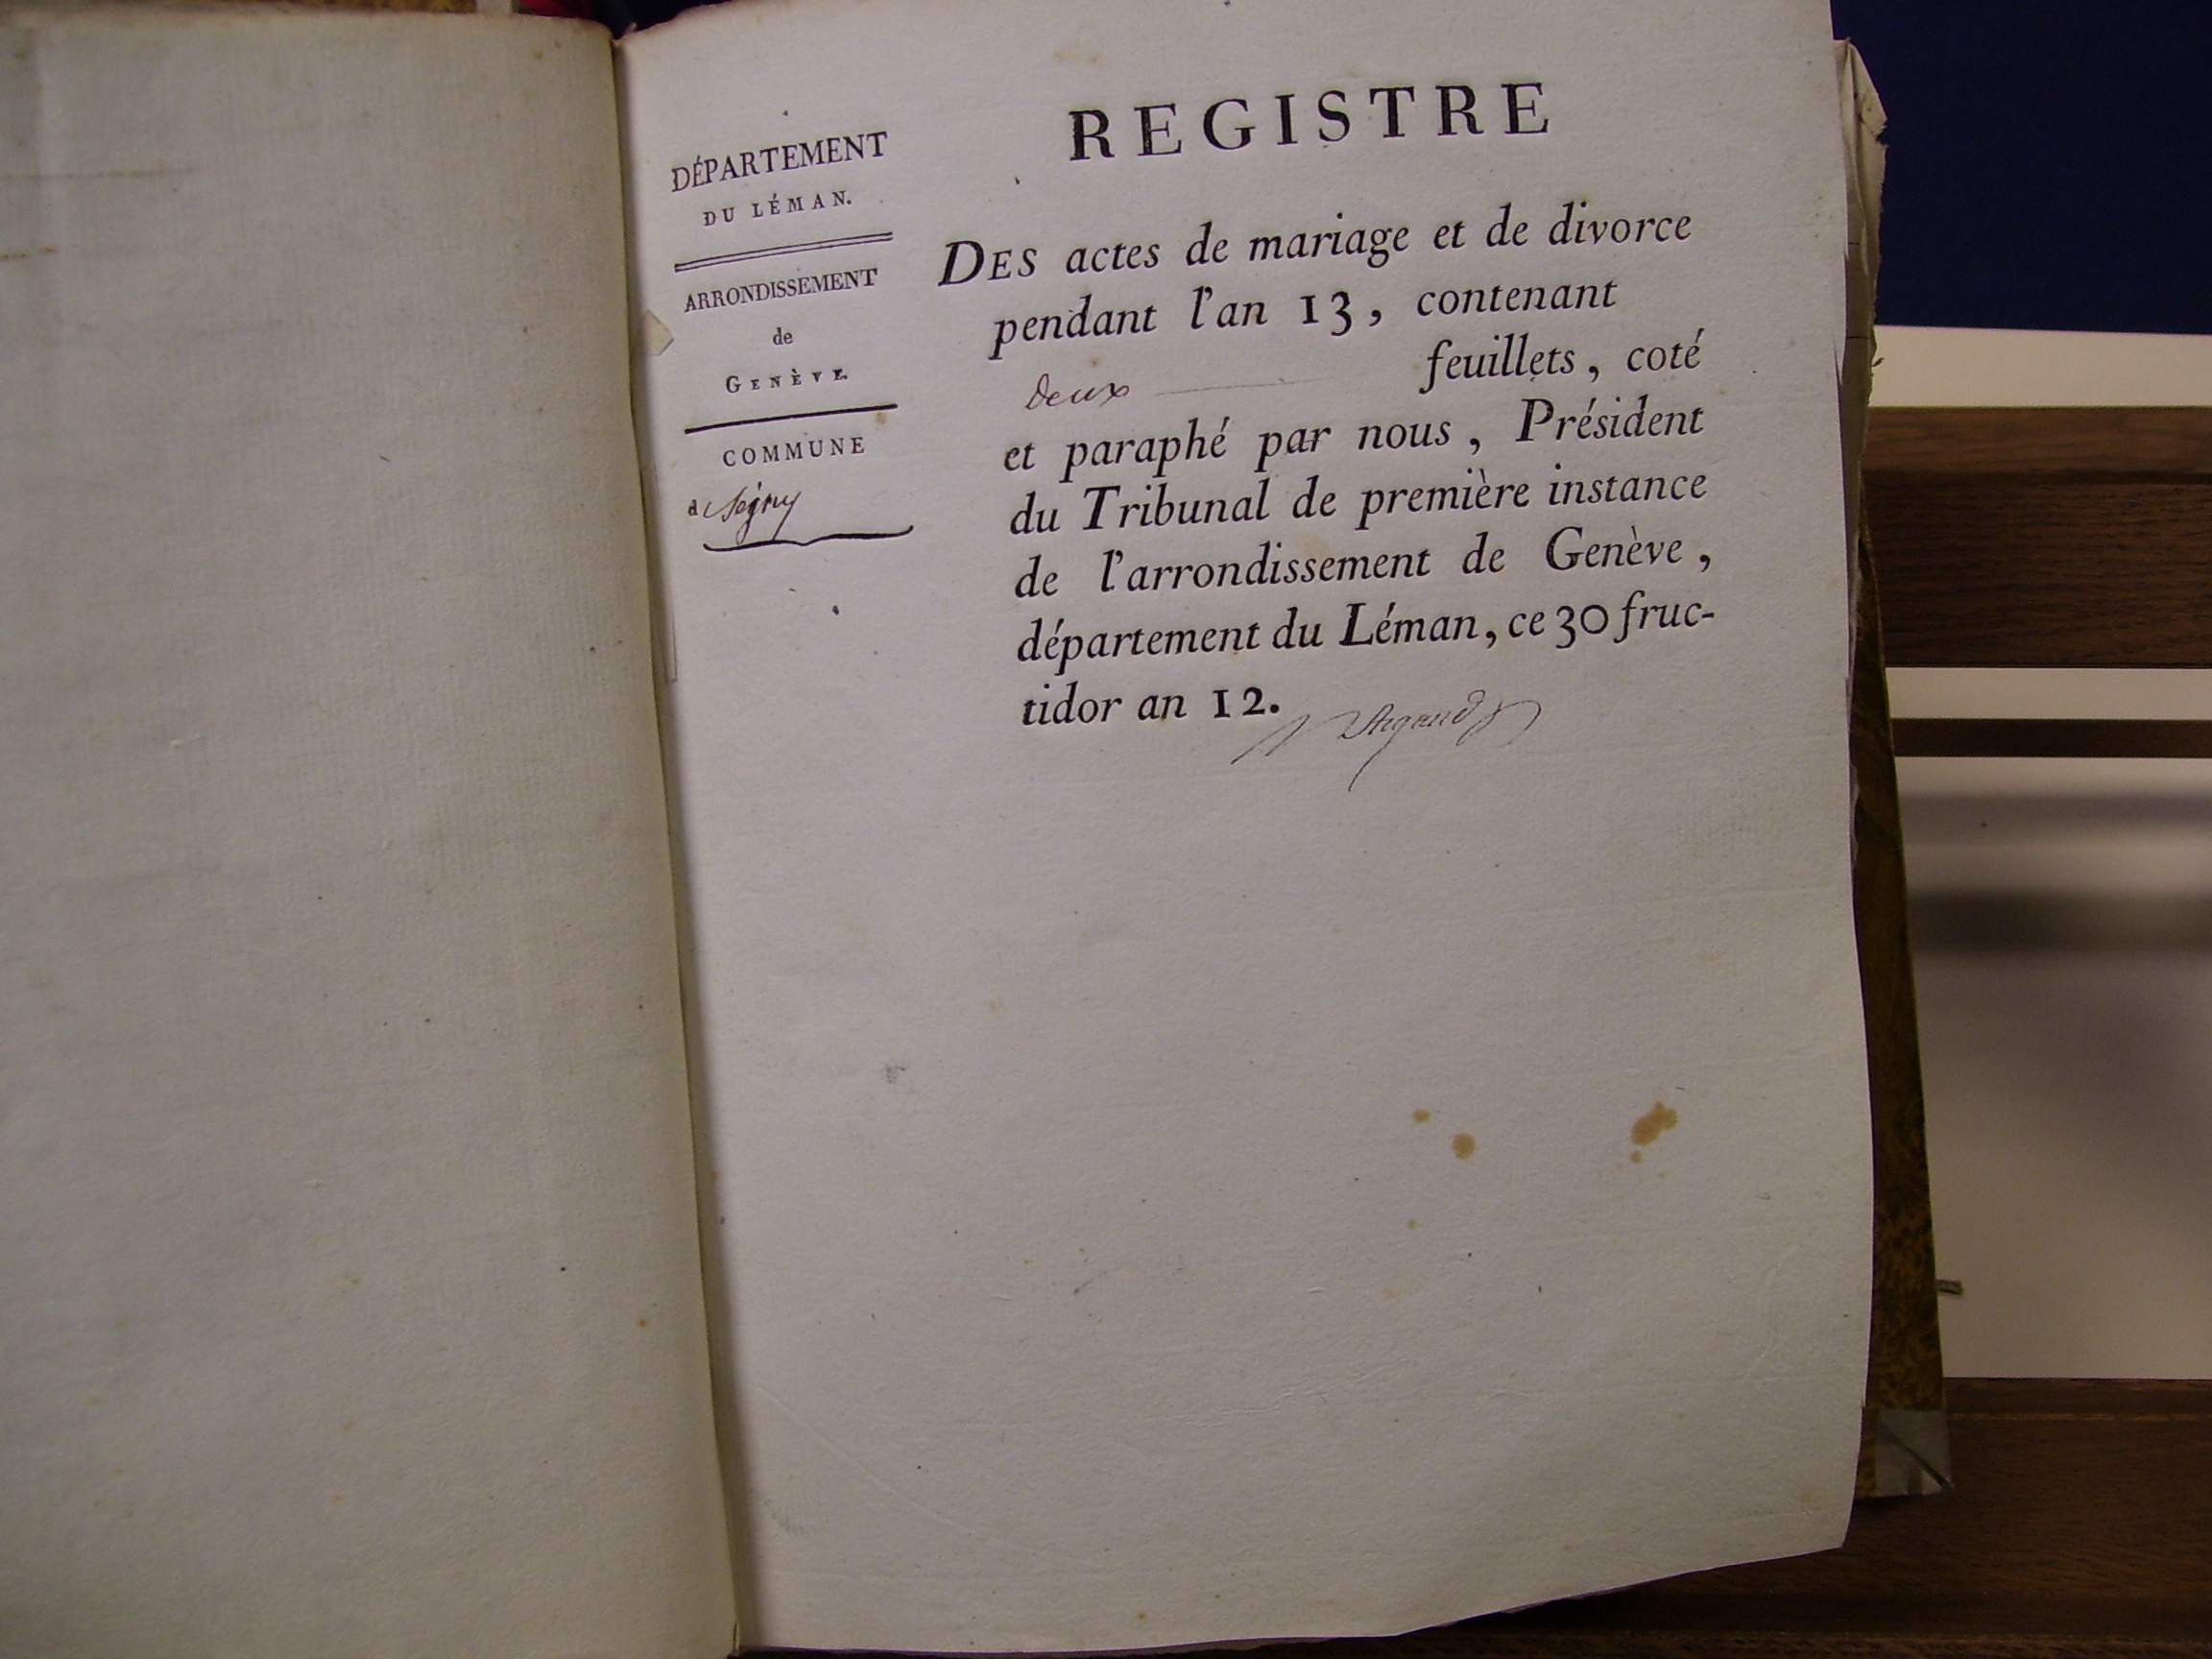 DÉPARTEMENT
DU LÉMAN.
ARRONDISSEMENT
de
GENÈVE.
COMMUNE
d Segny
REGISTRE
DES actes de mariage et de divorce
pendant l'an 13, contenant
deux feuillets, coté
et paraphé par nous, Président
du Tribunal de première instance
de l'arrondissement de Genève,
département du Léman, ce 30 fruc-
tidor an 12.